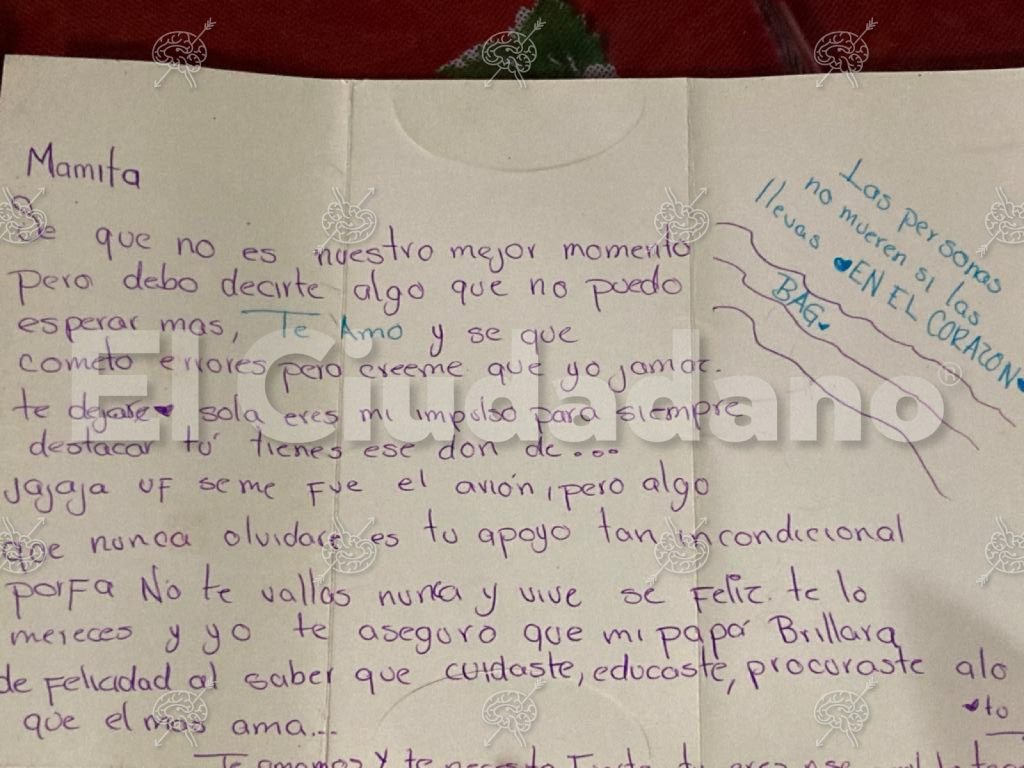 Mamita
Se que no es nuestro mejor momento
pero debo decirte algo que no puedo
esperar mas, Te Amo y se que
cometo errores pero creeme que yo jamaz.
te dejare♥ sola eres mi impulso para siempre
destacar tú tienes ese don de...
Jajaja UF se me Fue el avión, pero algo
que nunca olvidare es tu apoyo tan incondicional
porfa No te vallas nunca y vive se Feliz. te lo
mereces y yo te aseguro que mi papá Brillara
de felicidad al saber que cuidaste, educaste, procuraste alo
que el mas ama...
♥to
Te amamos y te
Las personas
no mueren si las
llevas ♥EN EL CORAZON♥
BAG♥
El Ciudadano®